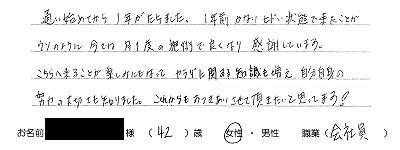 通い始めてから1年がたちました。1年前かなりヒドい状態で来たことが
ウソのように今では月1度の施術で良くなり感謝しています。
こちらへ来ることが楽しみにもなってカラダに関する知識も増え自分自身の
努力の大切さも知りました。これからもおつきあいさせて頂きたいと思ってます!
お名前 様 (42)歳 女性・男性 職業(会社員)